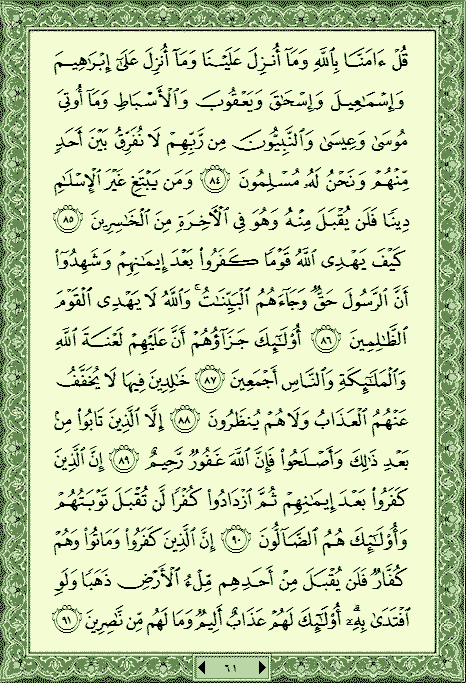 قُلْ ءَامَنَّا بِٱللَّهِ وَمَآ أُنزِلَ عَلَيْنَا وَمَآ أُنزِلَ عَلَىٰٓ إِبْرَٰهِيمَ
وَإِسْمَٰعِيلَ وَإِسْحَٰقَ وَيَعْقُوبَ وَٱلْأَسْبَاطِ وَمَآ أُوتِىَ
مُوسَىٰ وَعِيسَىٰ وَٱلنَّبِيُّونَ مِن رَّبِّهِمْ لَا نُفَرِّقُ بَيْنَ أَحَدٍ
مِّنْهُمْ وَنَحْنُ لَهُۥ مُسْلِمُونَ ٨٤ وَمَن يَبْتَغِ غَيْرَ ٱلْإِسْلَٰمِ
دِينًا فَلَن يُقْبَلَ مِنْهُ وَهُوَ فِى ٱلْأَخِرَةِ مِنَ ٱلْخَٰسِرِينَ ٨٥
كَيْفَ يَهْدِى ٱللَّهُ قَوْمًا كَفَرُوا۟ بَعْدَ إِيمَٰنِهِمْ وَشَهِدُوٓا۟
أَنَّ ٱلرَّسُولَ حَقٌّ وَجَآءَهُمُ ٱلْبَيِّنَٰتُ ۚ وَٱللَّهُ لَا يَهْدِى ٱلْقَوْمَ
ٱلظَّٰلِمِينَ ٨٦ أُو۟لَٰٓئِكَ جَزَآؤُهُمْ أَنَّ عَلَيْهِمْ لَعْنَةَ ٱللَّهِ
وَٱلْمَلَٰٓئِكَةِ وَٱلنَّاسِ أَجْمَعِينَ ٨٧ خَٰلِدِينَ فِيهَا لَا يُخَفَّفُ
عَنْهُمُ ٱلْعَذَابُ وَلَا هُمْ يُنظَرُونَ ٨٨ إِلَّا ٱلَّذِينَ تَابُوا۟ مِنۢ
بَعْدِ ذَٰلِكَ وَأَصْلَحُوا۟ فَإِنَّ ٱللَّهَ غَفُورٌ رَّحِيمٌ ٨٩ إِنَّ ٱلَّذِينَ
كَفَرُوا۟ بَعْدَ إِيمَٰنِهِمْ ثُمَّ ٱزْدَادُوا۟ كُفْرًا لَّن تُقْبَلَ تَوْبَتُهُمْ
وَأُو۟لَٰٓئِكَ هُمُ ٱلضَّآلُّونَ ٩٠ إِنَّ ٱلَّذِينَ كَفَرُوا۟ وَمَاتُوا۟ وَهُمْ
كُفَّارٌ فَلَن يُقْبَلَ مِنْ أَحَدِهِم مِّلْءُ ٱلْأَرْضِ ذَهَبًا وَلَوِ
ٱفْتَدَىٰ بِهِۦٓ ۗ أُو۟لَٰٓئِكَ لَهُمْ عَذَابٌ أَلِيمٌ وَمَا لَهُم مِّن نَّٰصِرِينَ ٩١
٦١